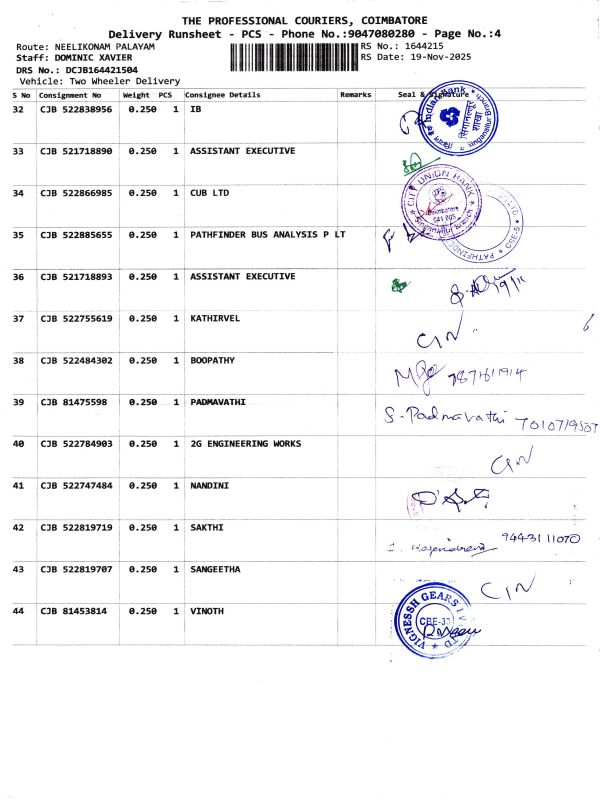 THE PROFESSIONAL COURIERS, COIMBATORE
Delivery Runsheet - PCS - Phone No.:9047080280 - Page No.:4
Route: NEELIKONAM PALAYAM RS No.: 1644215
Staff: DOMINIC XAVIER RS Date: 19-Nov-2025
DRS No.: DCJB164421504
Vehicle: Two Wheeler Delivery
S No Consignment No Weight PCS Consignee Details Remarks Seal & Signature
32 CJB 522838956 0.250 1 IB
33 CJB 521718890 0.250 1 ASSISTANT EXECUTIVE
34 CJB 522866985 0.250 1 CUB LTD CITY UNION BANK
35 CJB 522885655 0.250 1 PATHFINDER BUS ANALYSIS P LT
36 CJB 521718893 0.250 1 ASSISTANT EXECUTIVE 19/11
37 CJB 522755619 0.250 1 KATHIRVEL
38 CJB 522484302 0.250 1 BOOPATHY
39 CJB 81475598 0.250 1 PADMAVATHI S. Padmavathi
40 CJB 522784903 0.250 1 2G ENGINEERING WORKS
41 CJB 522747484 0.250 1 NANDINI
42 CJB 522819719 0.250 1 SAKTHI 9443111070
43 CJB 522819707 0.250 1 SANGEETHA
44 CJB 81453814 0.250 1 VINOTH VIGNESSH GEARS